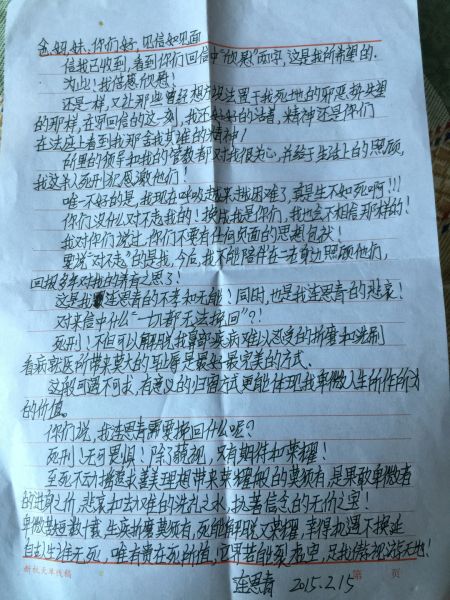 爸、妈、妹、你们好,见信如见面
信我已收到,看到你们回信中"欣慰"两字,这是我所希望的.
为此!我倍感欣慰!
还是一样,又让那些曾经想方设法置于我死地的邪恶势失望
的那样,在写回信的这一刻,我还好好的活着,精神还是你们
在法庭上看到我那舍我其谁的精神!
所里的领导和我的管教都对我很关心,并给于生活上的照顾,
我这个人死刑犯感激他们!
唯一不好的是,我现在呼吸越来越困难了,真是生不如死啊!!!
你们没什么对不起我的!换成我是你们,我也会不相信那样的!
我对你们说过,你们不要有任何负面的思想包袱!
要说"对不起"的是我,今后,我不能陪伴在一老身边照顾他们,
回报多年对我的养育之恩了!
这是我连恩青的不孝和无能!同时,也是我连恩青的悲哀!
对来信中什么"一切都无法挽回"?!
死刑!不但可以解脱我鼻部疾病难以忍受的折磨和洗刷
看病就医所带来莫大的耻辱是最好最完美的方式.
这般可遇不可求,有意义的归宿方式更能体现我卑微人生所作所为
的价值。
你们说,我连恩青需要挽回什么呢?
死刑!无可畏惧!除了藐视,只有期待和荣耀!
至死不动摇追求善美理想带来荣耀般的莫须有,是果敢卑微者
的进身之价,悲哀和去
之水,执着信念的无价之宝!
卑微莫短数十载,生疾折磨莫须有,死能解脱又荣耀,幸得机遇不换延
自古人生谁无死,唯有贵在死所值,
苍空,足我傲视游天地!
连恩青 2015.2.15
新杭天半线稿
第 页